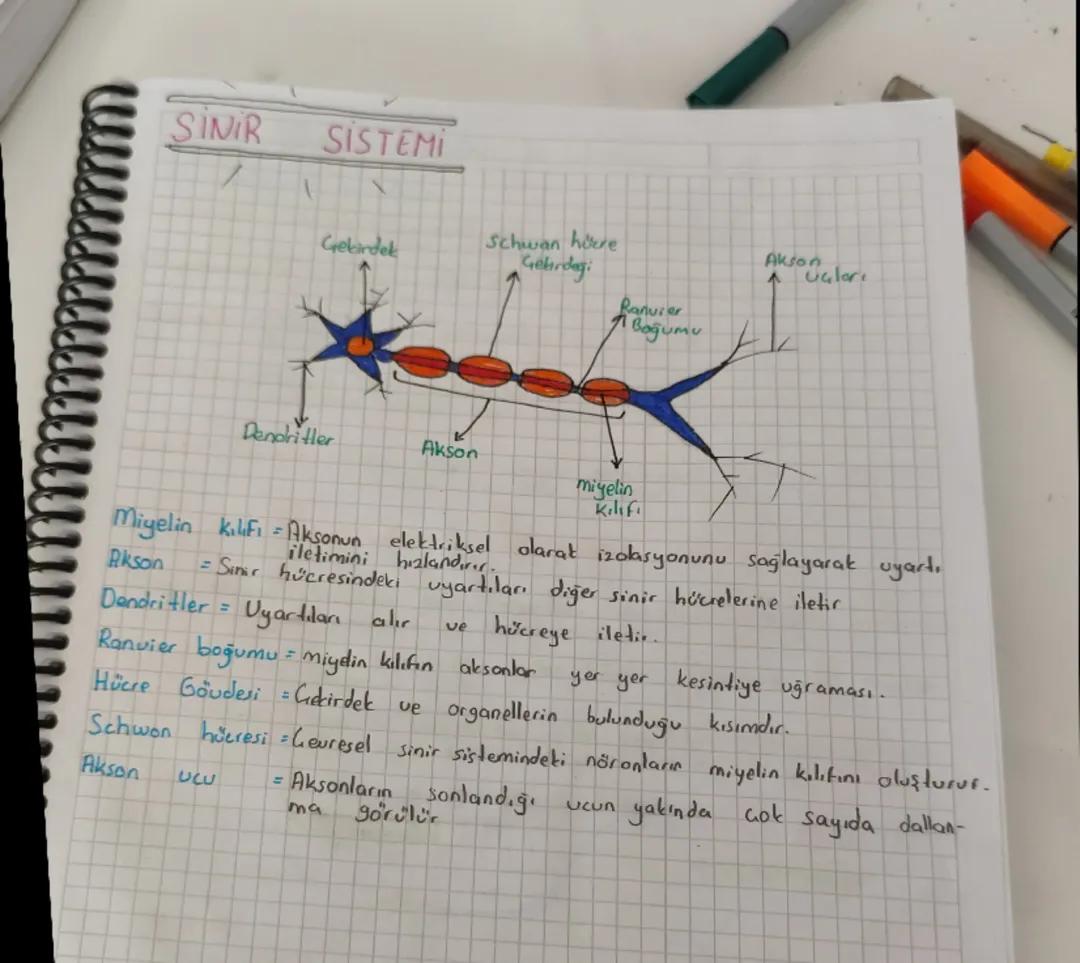 SİNİR SİSTEMİ
Gekirdek
Schwan hücre
Gekirdeği
Ranvier
Boğumu
Akson
uçları
Dendritler
Akson
miyelin
kılıfı
Miyelin kılıfı = Aksonun elektriksel olarak izolasyonunu sağlayarak uyartı
iletimini hızlandırır.
Akson = Sinir hücresindeki uyartıları diğer sinir hücrelerine iletir
Dendritler = Uyartıları alır ve hücreye iletir.
Ranvier boğumu = miyelin kılıfın aksonlar yer yer kesintiye uğraması.
Hücre Gövdesi = Çekirdek ve organellerin bulunduğu kısımdır.
Schwan hücresi = Çevresel sinir sistemindeki nöronların miyelin kılıfını oluşturur.
Akson ucu = Aksonların sonlandığı ucun yakında çok sayıda dallan-
ma görülür